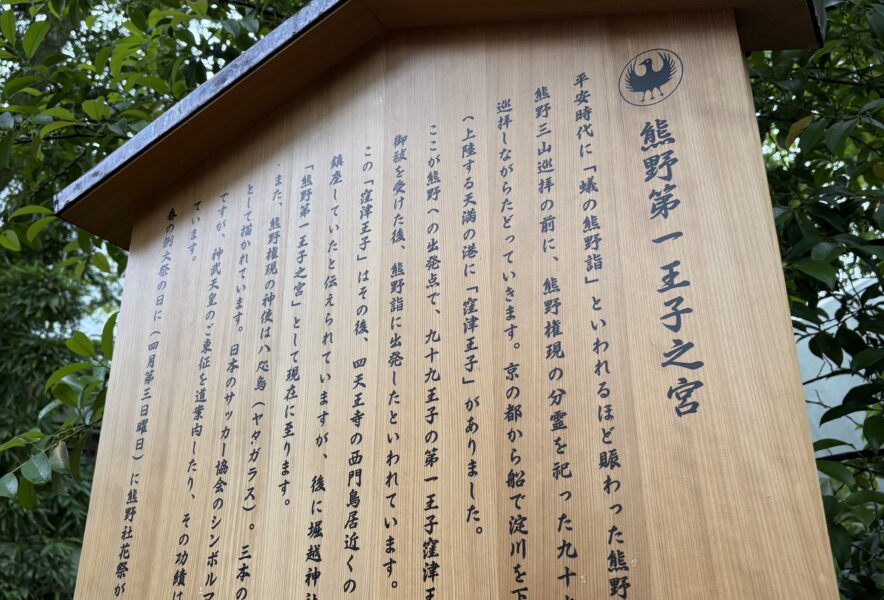 熊野第一王子之宮
平安時代に「蟻の熊野詣」といわれるほど賑わった熊野
熊野三山巡拝の前に、熊野権現の分霊を祀った九十
巡拝しながらたどっていきます。京の都から船で淀川を下
へ上陸する天満の港に「窪津王子」がありました。
ここが熊野への出発点で、九十九王子の第一王子窪津王
御祓を受けた後、熊野詣に出発したといわれています。
この「窪津王子」はその後、四天王寺の西門鳥居近くの
鎮座していたと伝えられていますが、後に堀越神社
「熊野第一王子之宮」として現在に至ります。
また、熊野権現の神使は八咫烏（ヤタガラス）。三本の
として描かれています。日本のサッカー協会のシンボルマ
ですが、神武天皇のご東征を道案内したり、その功績は
ています。
春の例大祭の日に（四月第三日曜日）に熊野社花祭が